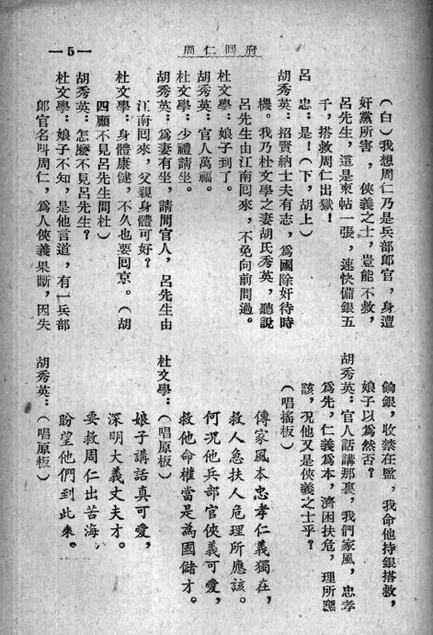 —5—
周仁囘府
(白)我想周仁乃是兵部郎官,身遭
奸黨所害,俠義之士,豈能不救,
呂先生,這是柬帖一張,速快備銀五
千,搭救周仁出獄!
呂 忠:是!(下,胡上)
胡秀英:招賢納士夫有志,爲國除奸待時
機。我乃杜文學之妻胡氏秀英,聽說
呂先生由江南囘來,不免向前問過。
杜文學:娘子到了。
胡秀英:官人萬福。
杜文學:少禮請坐。
胡秀英:爲妻有坐,請問官人,呂先生由
江南囘來,父親身體可好?
杜文學:身體康健,不久也要囘京。(胡
四顧不見呂先生問杜)
胡秀英:怎麼不見呂先生?
杜文學:娘子不知,是他言道,有一兵部
郎官名叫周仁,爲人俠義果斷,因失
餉銀,收禁在監,我命他持銀搭救,
娘子以爲然否?
胡秀英:官人話講那裏,我們家風,忠孝
爲先,仁義爲本,濟困扶危,理所應
該,況他又是俠義之士乎?
(唱搖板)
傳家風本忠孝仁義獨在,
救人急扶人危理所應該。
何況他兵部官俠義可愛,
救他命權當是為國儲才。
杜文學:(唱原板)
娘子講話真可愛,
深明大義丈夫才。
胡秀英:(唱原板)
要救周仁出苦海,
盼望他們到此來。